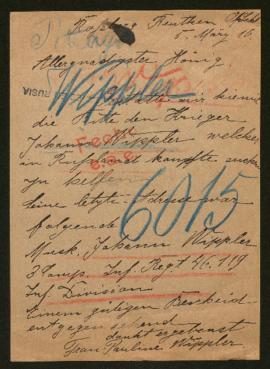 Roßberg Beuthen O/Schl
5. März 16.
Allergnädigster König
Wippler
VISUR
gestatte mir hiermit
die Bitte den Krieger
Johann Wippler welcher
in Rußland kämpfte suchen
zu helfen
6015
seine letzte Adresse war
folgende
Musk. Johann Wippler
3 Comp. Inf. Regt 46. 119
Inf. Division
Einem gütigen Bescheid
entgegen sehend
dankt ergebenst
Frau Pauline Wippler